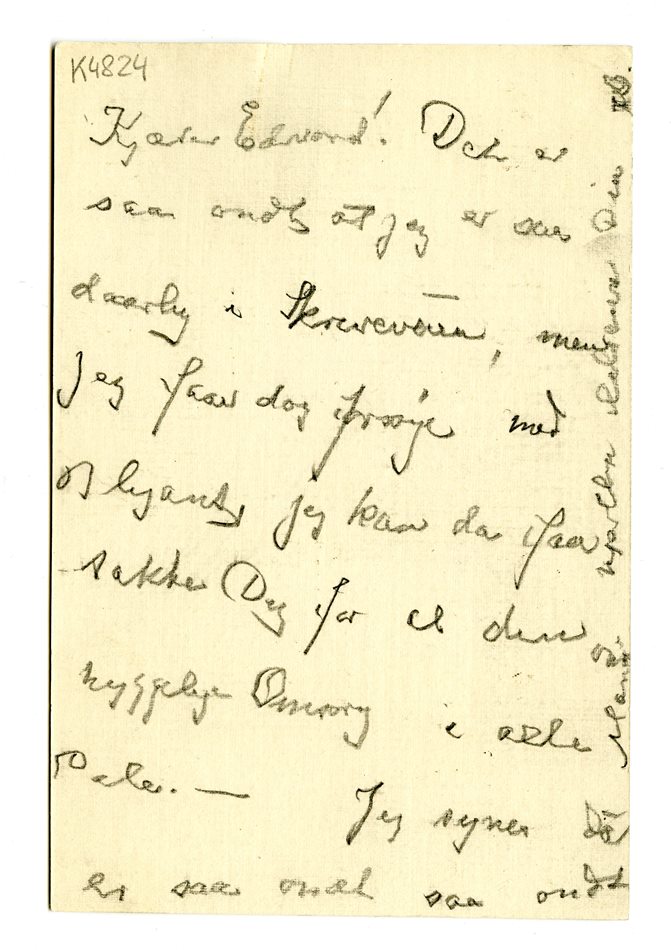 K4824
Kjære Edvard! Det er
saa ondt at jeg er saa
daarlig i Skrevevæien, men
jeg faar dog forsøge med
Blyant, jeg kan da faa
takke Dig for al den
hyggelige Omsorg i alle
Dele. — Jeg synes det
er saa ondt saa ondt